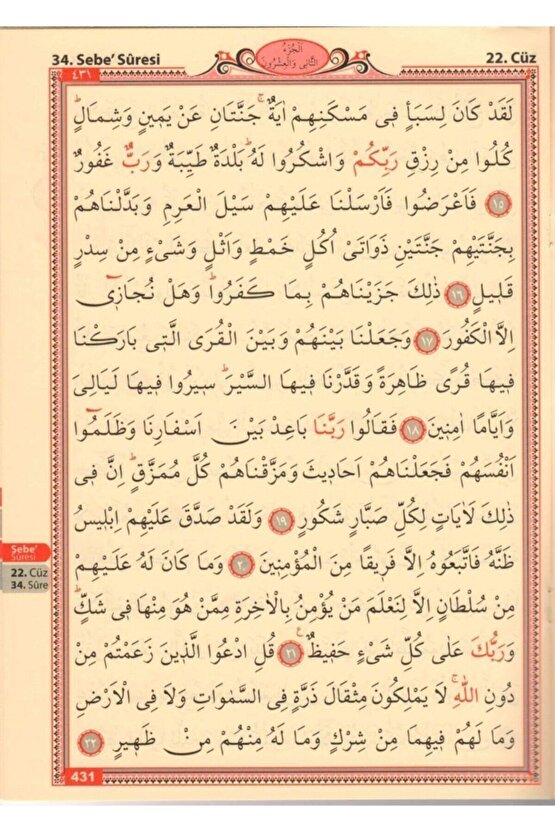 34. Sebe’ Sûresi
اَلْجُزْءُ
الثَّانِى وَالْعِشْرُونَ
22. Cüz
٤٣١
لَقَدْ كَانَ لِسَبَأٍ فٖى مَسْكَنِهِمْ اٰيَةٌۚ جَنَّتَانِ عَنْ يَمٖينٍ وَشِمَالٍؕ
كُلُوا مِنْ رِزْقِ رَبِّكُمْ وَاشْكُرُوا لَهُؕ بَلْدَةٌ طَيِّبَةٌ وَرَبٌّ غَفُورٌ
﴿١٥﴾ فَاَعْرَضُوا فَاَرْسَلْنَا عَلَيْهِمْ سَيْلَ الْعَرِمِ وَبَدَّلْنَاهُمْ
بِجَنَّتَيْهِمْ جَنَّتَيْنِ ذَوَاتَىْ اُكُلٍ خَمْطٍ وَاَثْلٍ وَشَىْءٍ مِنْ سِدْرٍ
قَلٖيلٍ ﴿١٦﴾ ذٰلِكَ جَزَيْنَاهُمْ بِمَا كَفَرُواؕ وَهَلْ نُجَازٖٓى
اِلَّا الْكَفُورَ ﴿١٧﴾ وَجَعَلْنَا بَيْنَهُمْ وَبَيْنَ الْقُرَى الَّتٖى بَارَكْنَا
فٖيهَا قُرًى ظَاهِرَةً وَقَدَّرْنَا فٖيهَا السَّيْرَؕ سٖيرُوا فٖيهَا لَيَالِىَ
وَاَيَّامًا اٰمِنٖينَ ﴿١٨﴾ فَقَالُوا رَبَّنَا بَاعِدْ بَيْنَ اَسْفَارِنَا وَظَلَمُٓوا
اَنْفُسَهُمْ فَجَعَلْنَاهُمْ اَحَادٖيثَ وَمَزَّقْنَاهُمْ كُلَّ مُمَزَّقٍؕ اِنَّ فٖى
ذٰلِكَ لَاٰيَاتٍ لِكُلِّ صَبَّارٍ شَكُورٍ ﴿١٩﴾ وَلَقَدْ صَدَّقَ عَلَيْهِمْ اِبْلٖيسُ
ظَنَّهُ فَاتَّبَعُوهُ اِلَّا فَرٖيقًا مِنَ الْمُؤْمِنٖينَ ﴿٢٠﴾ وَمَا كَانَ لَهُ عَلَيْهِمْ
مِنْ سُلْطَانٍ اِلَّا لِنَعْلَمَ مَنْ يُؤْمِنُ بِالْاٰخِرَةِ مِمَّنْ هُوَ مِنْهَا فٖى شَكٍّؕ
وَرَبُّكَ عَلٰى كُلِّ شَىْءٍ حَفٖيظٌۚ ﴿٢١﴾ قُلِ ادْعُوا الَّذٖينَ زَعَمْتُمْ مِنْ
دُونِ اللّٰهِۚ لَا يَمْلِكُونَ مِثْقَالَ ذَرَّةٍ فِى السَّمٰوَاتِ وَلَا فِى الْاَرْضِ
وَمَا لَهُمْ فٖيهِمَا مِنْ شِرْكٍ وَمَا لَهُ مِنْهُمْ مِنْ ظَهٖيرٍ ﴿٢٢﴾
Sebe’
Sûresi
22. Cüz
34. Sûre
431